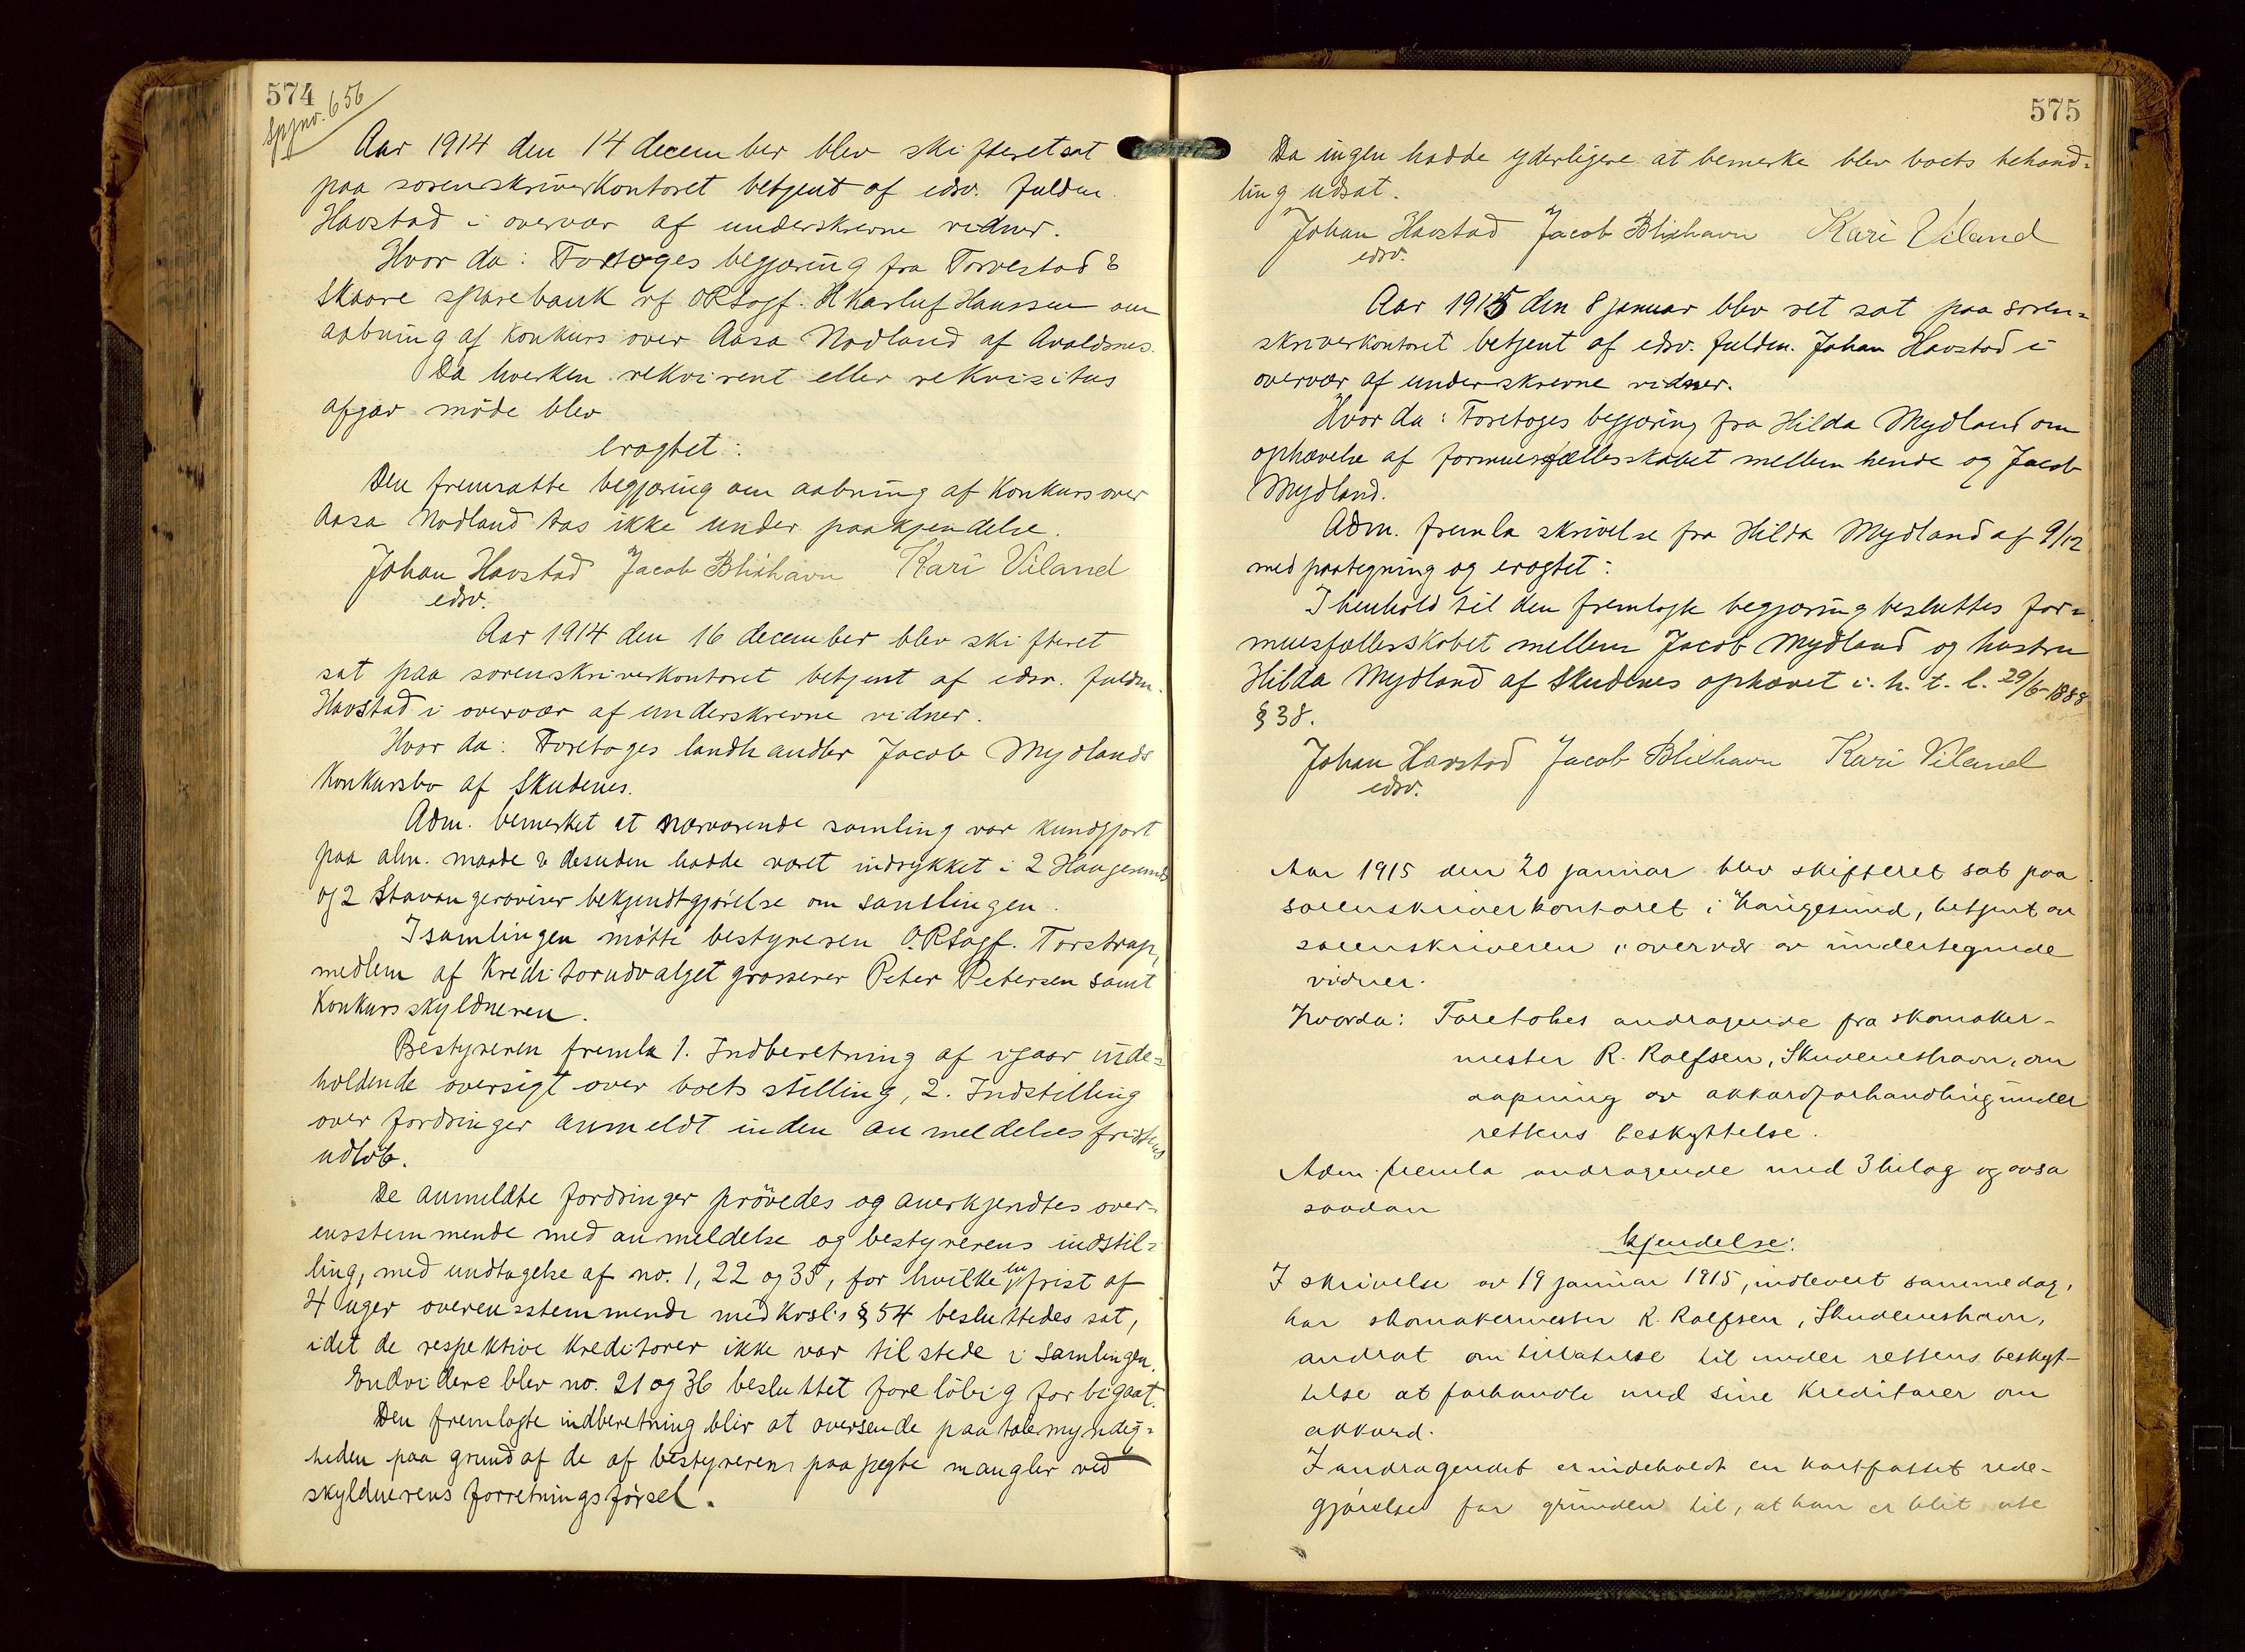 574
Spjnr. 656
Aar 1914 den 14 december blev skifteret sat
paa sorenskriverkontoret betjent af edsv. fuldm.
Havstad i overvær af underskrevne vidner.
Hvor da: Foretoges begjæring fra Torvestad &
Skaare sparebank vf ORSagf. Karluf Hanssen om
aabning af konkurs over Aasa Nodland af Avaldsnes.
Da hverken rekvirent eller rekvisitus
afgav møde blev
eragtet:
Den fremsatte begjæring om aabning af konkurs over
Aasa Nodland tas ikke under paakjendelse.
Johan Havstad Jacob Blixhavn Kari Viland
edsv.
Aar 1914 den 16 december blev skifteret
sat paa sorenskriverkontoret betjent af edsv. fuldm.
Havstad i overvær af underskrevne vidner.
Hvor da: Foretoges landhandler Jacob Mydlands
Konkursbo af Skudenes.
Adm. bemerket at nærværende samling var kundgjort
paa alm. maade & desuden hadde været indrykket i 2 Haugesunds
og 2 Stavangeraviser bekjendtgjørelse om samlingen.
I samlingen møtte bestyreren O.RSagf. Torstrup,
medlem af Kreditorudvalget grosserer Peter Petersen samt
Konkursskyldneren.
Bestyreren fremla 1. Indberetning af igaar inde=
holdende oversigt over boets stilling, 2. Indstilling
over fordringer anmeldt inden anmeldelsesfristens
udløb.
De anmeldte fordringer prøvedes og anerkjendtes over-
ensstemmende med anmeldelse og bestyrerens indstil=
ling, med undtagelse af no. 1, 22 og 35, for hvilke en frist af
4 uger overensstemmende med Krsl's § 54 besluttedes sat,
idet de respektive Kreditorer ikke var tilstede i samlingen.
Endvidere blev no. 21 og 36 besluttet foreløbig forbigaat.
Den fremlagte indberetning blir at oversende paatalemyndig=
heden paa grund af de af bestyreren paapegte mangler ved
skyldnerens forretningsførsel.
575
Da ingen hadde yderligere at bemerke blev boets behand=
ling udsat.
Johan Havstad Jacob Blixhavn Kari Viland
edsv.
Aar 1915 den 8 januar blev ret sat paa soren=
skriverkontoret betjent af edsv. fuldm. Johan Havstad i
overvær af underskrevne vidner.
Hvor da: Foretoges begjæring fra Hilda Mydland om
ophævelse af formuesfællesskabet mellem hende og Jacob
Mydland.
Adm. fremla skrivelse fra Hilda Mydland af 9/12
med paategning og eragtet:
I henhold til den fremlagte begjæring besluttes for=
muesfællesskabet mellem Jacob Mydland og hustru
Hilda Mydland af Skudenes ophævet i. h. t. l. 29/6-1888
§ 38.
Johan Havstad Jacob Blixhavn Kari Viland
edsv.
Aar 1915 den 20 januar blev skifteret sat paa
sorenskriverkontoret i Haugesund, betjent av
sorenskriveren i overvær av undertegnede
vidner.
Hvorda: Foretokes andragende fra skomaker-
mester R. Rolfsen, Skudeneshavn, om
aapning av akkordforhandling under
rettens beskyttelse.
Adm. fremla andragende med 3 bilag og avsa
saadan
kjendelse:
I skrivelse av 19 januar 1915, indlevert samme dag,
har skomakermester R. Rolfsen, Skudeneshavn,
andrat om tillatelse til under rettens beskyt-
telse at forhandle med sine kreditorer om
akkord.
I andragendet er indeholdt en kortfattet rede-
gjørelse for grunden til, at han er blit ute